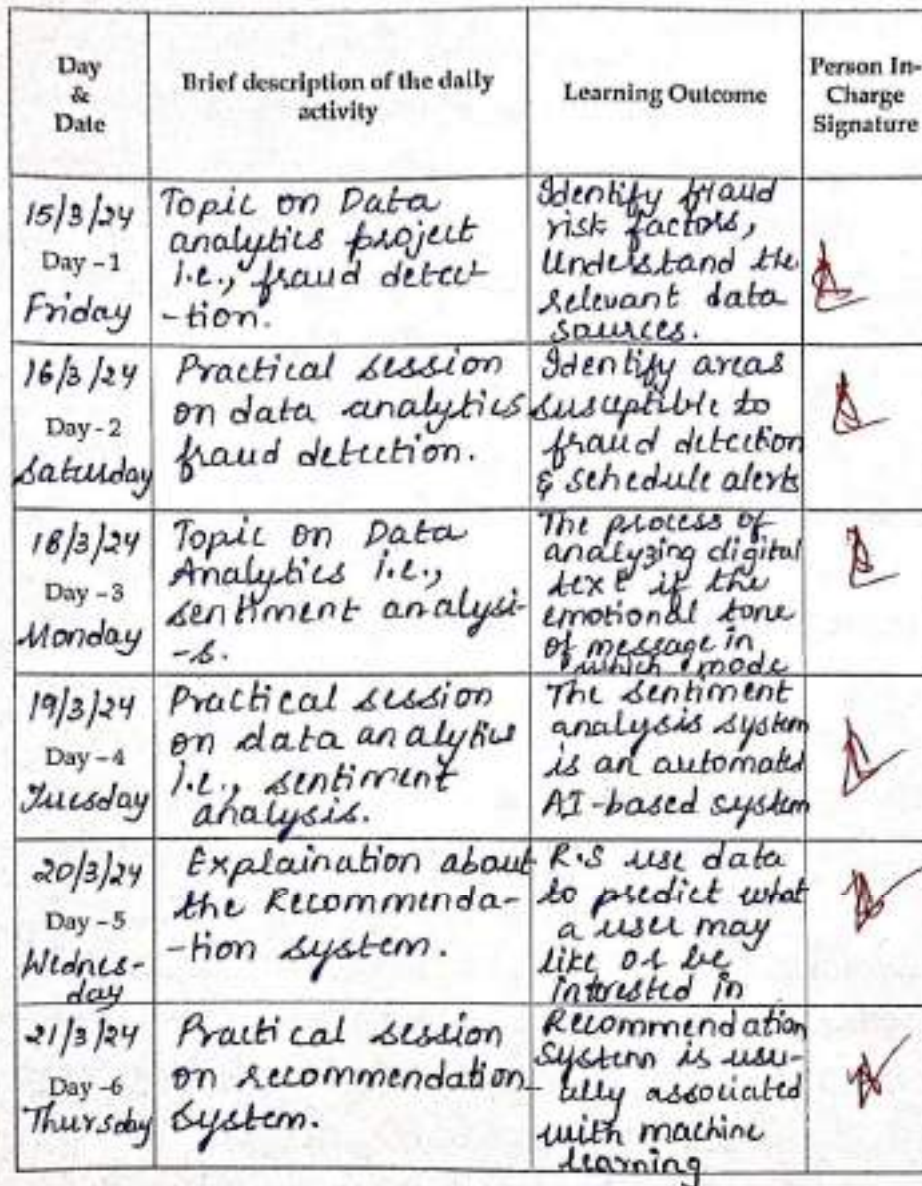 Day
&
Date
Brief description of the daily
activity
Learning Outcome
Person In-
Charge
Signature
15/3/24
Day - 1
Friday
Topic on Data
analytics project
i.e., fraud detect
-tion.
Identify fraud
risk factors,
Understand the
relevant data
sources.
16/3/24
Day - 2
Saturday
Practical session
on data analytics
fraud detection.
Identify areas
susuptible to
fraud detection
& schedule alerts
18/3/24
Day - 3
Monday
Topic on Data
Analytics i.e.,
sentiment analysi-
-s.
The process of
analyzing digital
text if the
emotional tone
of message in
which mode
19/3/24
Day - 4
Tuesday
Practical session
on data analytics
i.e., sentiment
analysis.
The sentiment
analysis system
is an automated
AI-based system
20/3/24
Day - 5
Wednes-
day
Explaination about
the Recommenda-
-tion system.
R.S use data
to predict what
a user may
like or be
interested in
21/3/24
Day - 6
Thursday
Practical session
on recommendation
system.
Recommendation
system is usu-
ally associated
with machine
learning